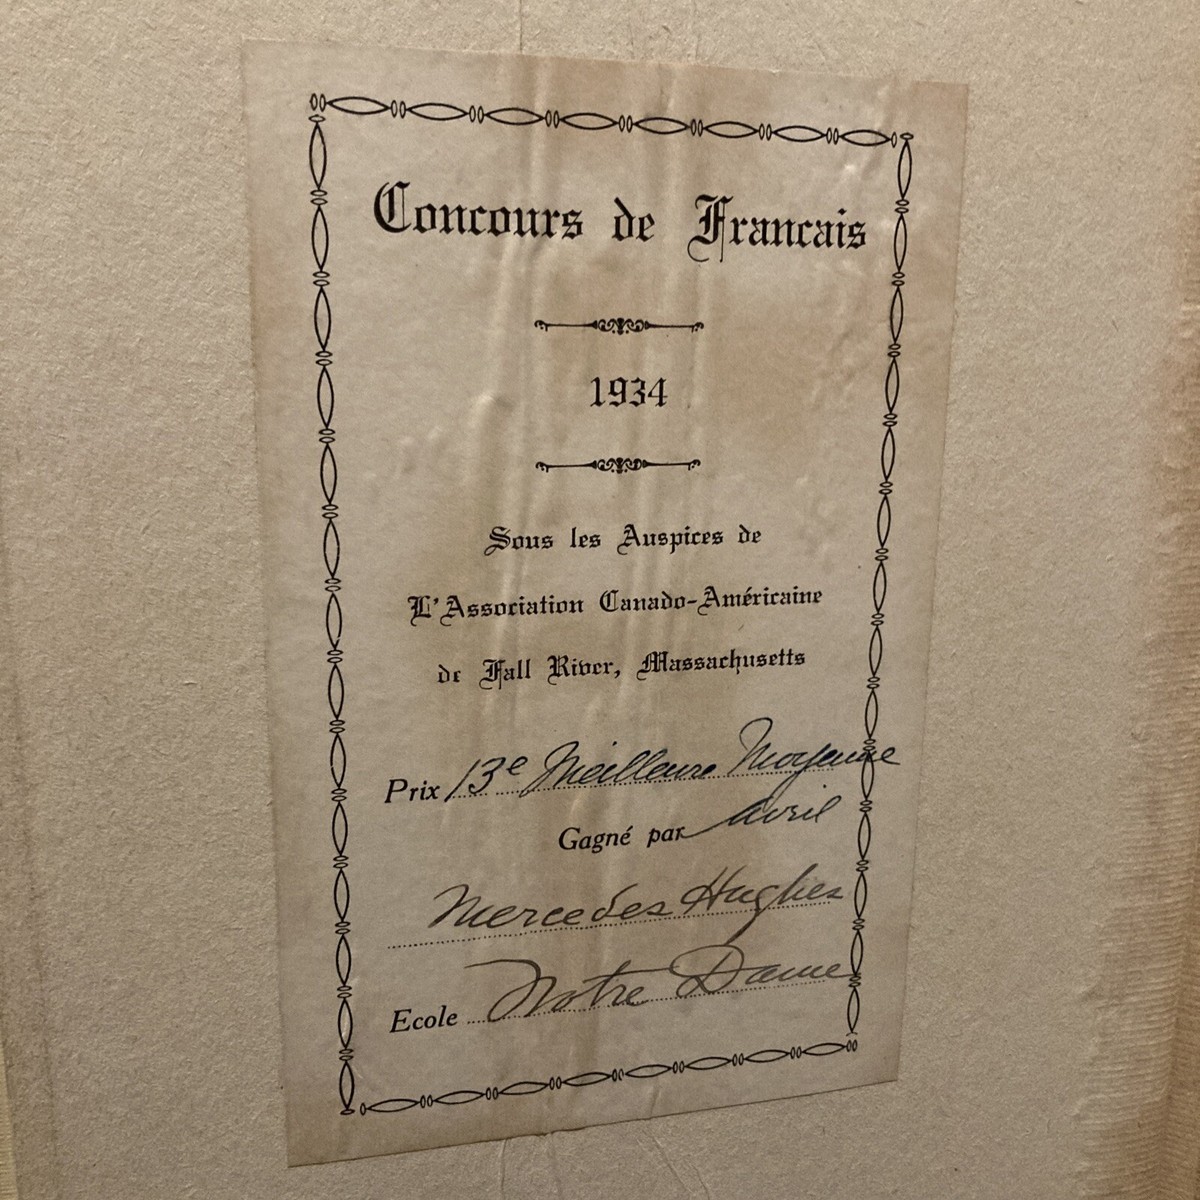 Concours de Francais
1934
Sous les Auspices de
L'Association Canado-Américaine
de Fall River, Massachusetts
Prix 13e Meilleure Moyenne
Gagné par avril
Mercedes Hughes
Ecole Notre Dame